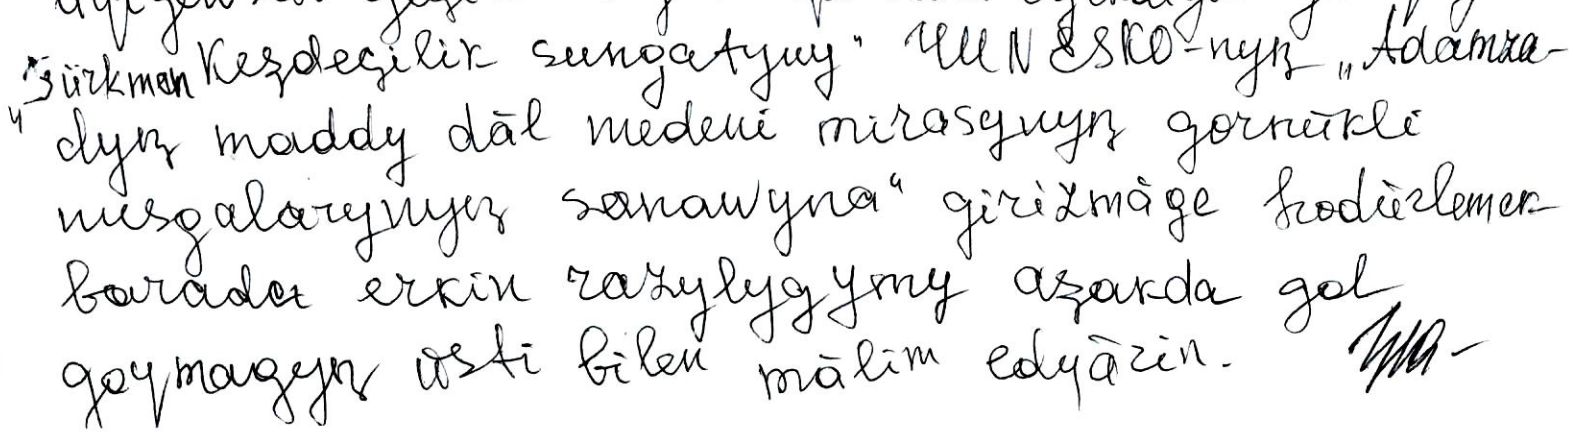 "Türkmen Keşdeçilik sungatyny" ÝUNESKO-nyň „Adamza-
dyň maddy däl medeni mirasynyň görnükli
nusgalarynyň sanawyna" girizmäge hödürlemek
barada erkin razylygymy aşakda gol
goýmagyň üsti bilen mälim edýärin.